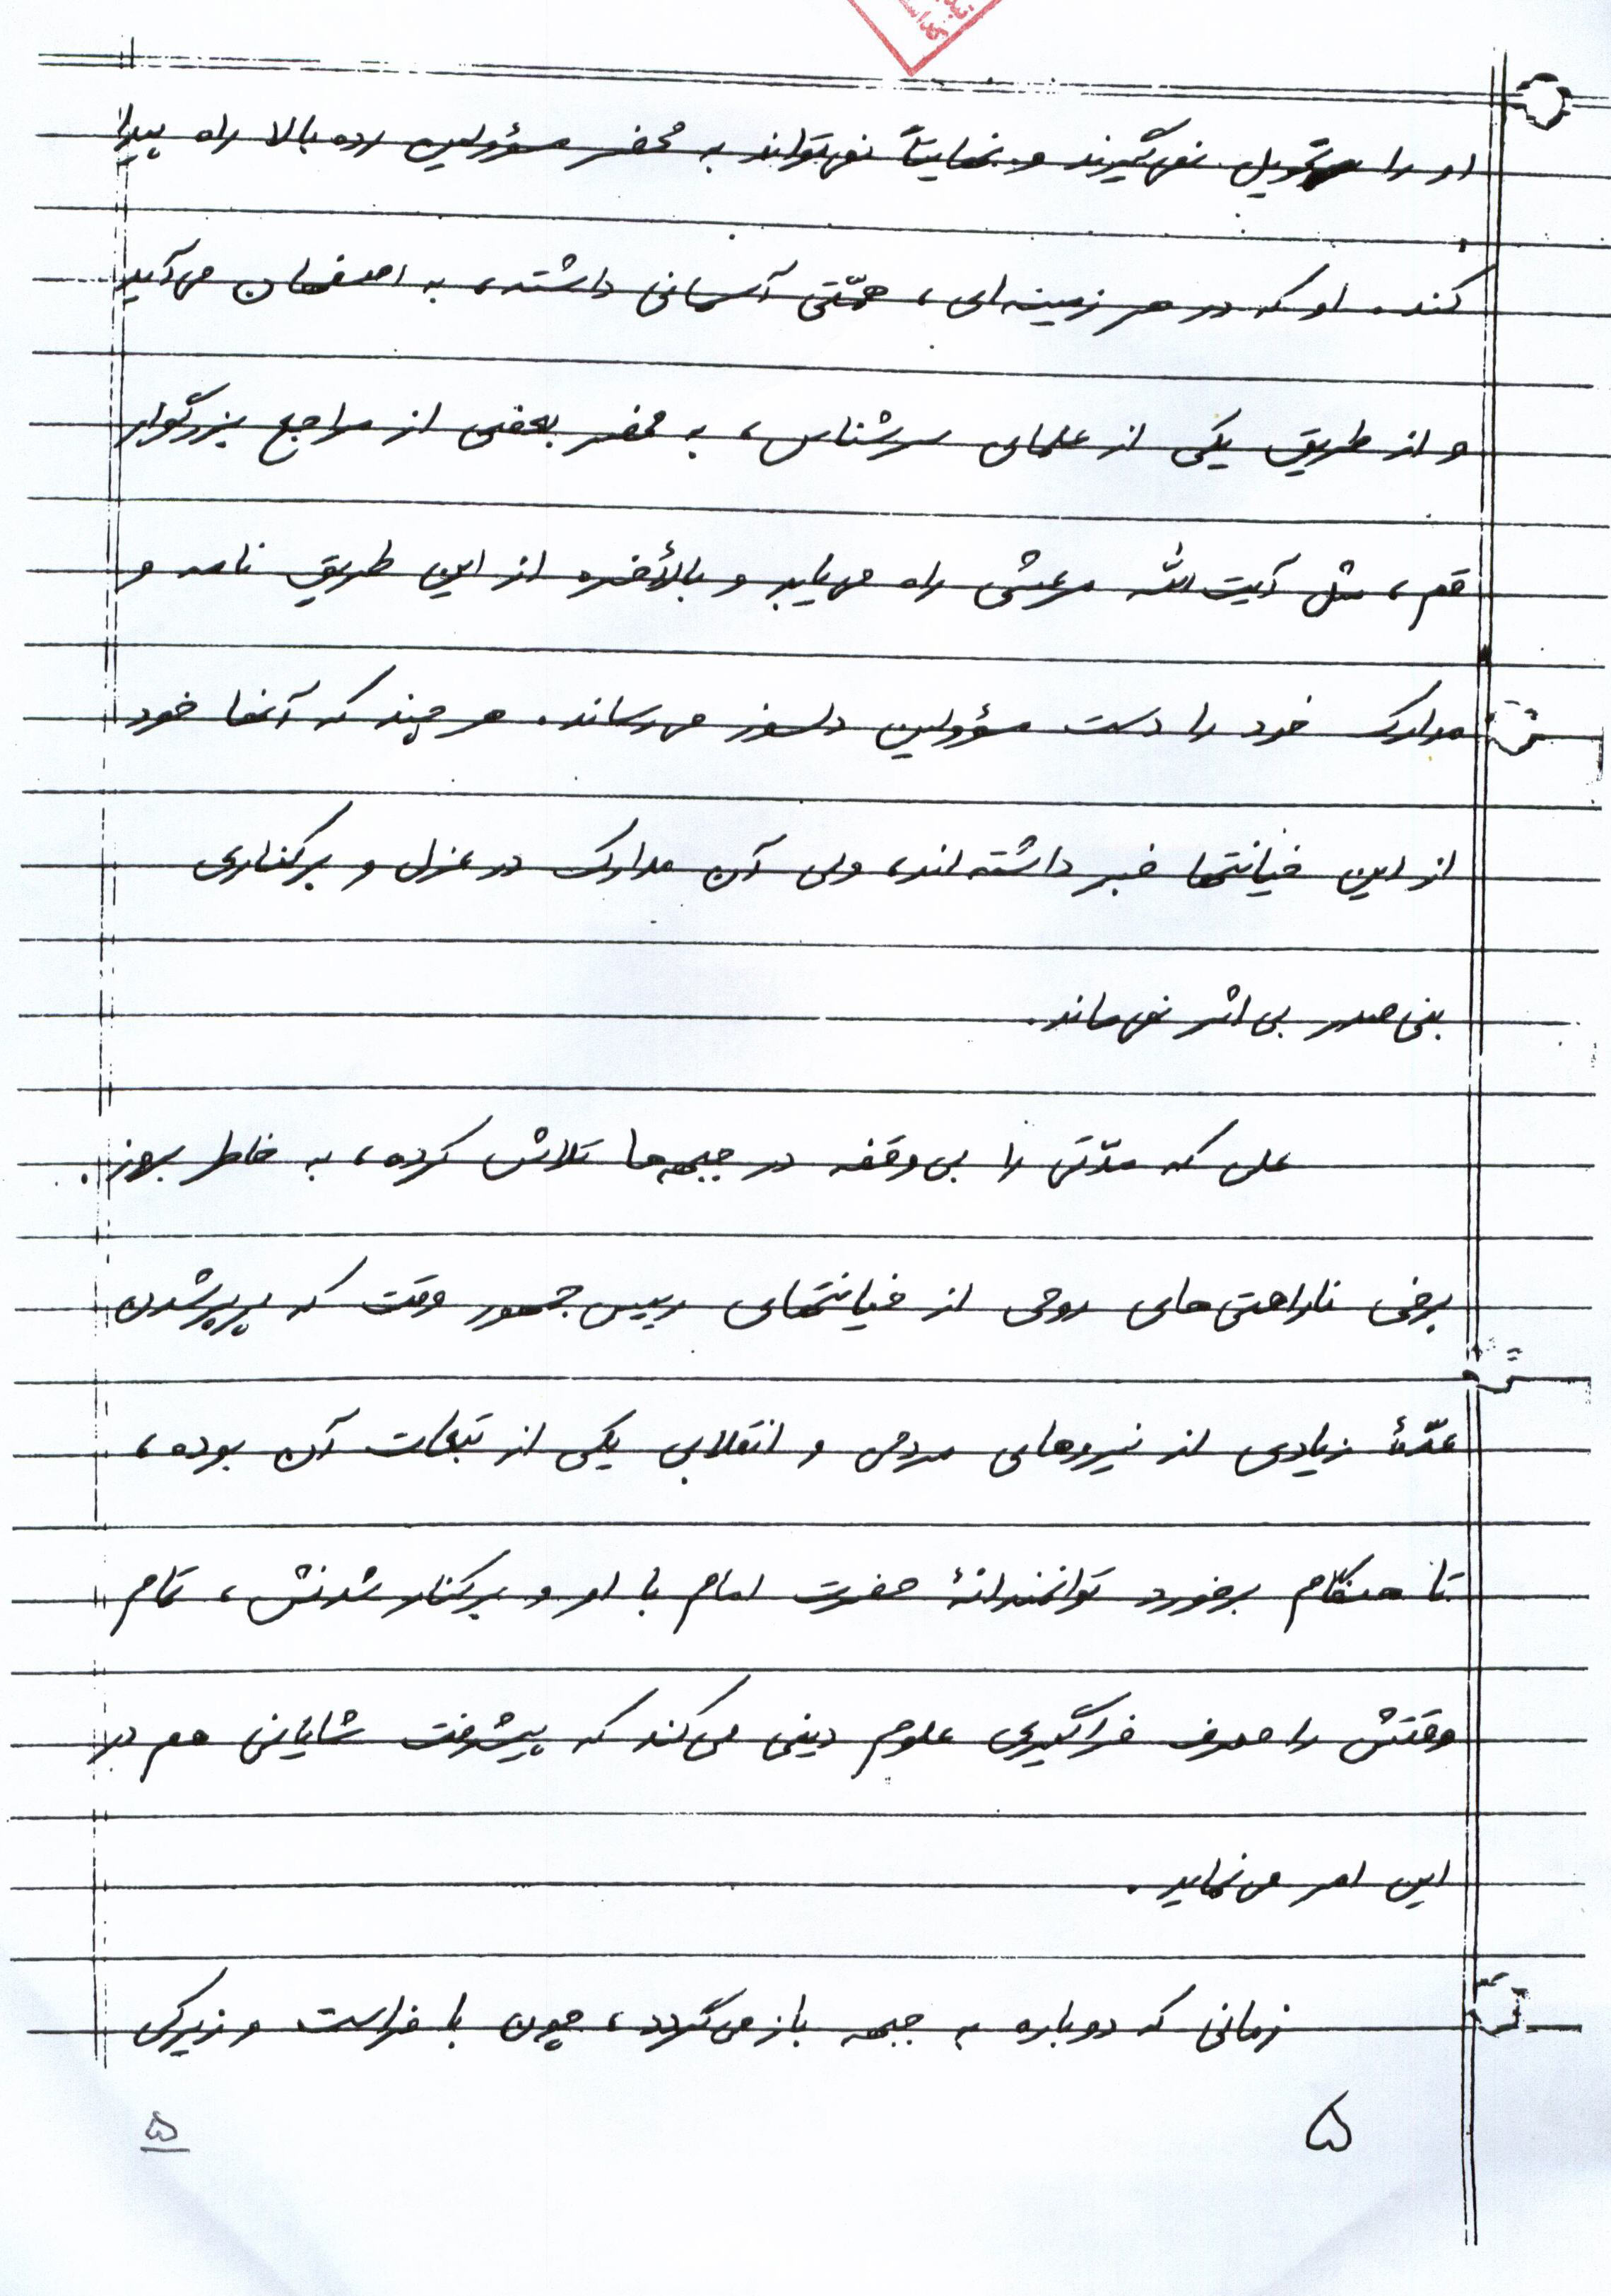 او را تحویل نمی‌گیرند و نهایتاً نمی‌تواند به محضر مسؤولین رده بالا راه پیدا
کند. او که در هر زمینه‌ای، همّتی آسمانی داشته، به اصفهان می‌آید
و از طریق یکی از علمای سرشناس، به محضر بعضی از مراجع بزرگوار
قم، مثل آیت الله مرعشی راه می‌یابد و بالأخره از این طریق نامه و
مدارک خود را دست مسؤولین دلسوز می‌رساند. هر چند که آنها خود
از این خیانتها خبر داشته‌اند، ولی آن مدارک در عزل و برکناری
بنی صدر بی اثر نمی‌ماند.
علی که مدّتی را بی‌وقفه در جبهه‌ها تلاش کرده، به خاطر بروز
برخی ناراحتی‌های روحی از خیانتهای رییس جمهور وقت که پرپر شدن
عدّهٔ زیادی از نیروهای مردمی و انقلابی یکی از تبعات آن بوده،
تا هنگام برخورد توانمندانهٔ حضرت امام با او و برکنار شدنش، تمام
وقتش را صرف فراگیری علوم دینی می‌کند که پیشرفت شایانی هم در
این امر می‌نماید.
زمانی که دوباره به جبهه باز می‌گردد، چون با فراست و زیرکی
۵
۵